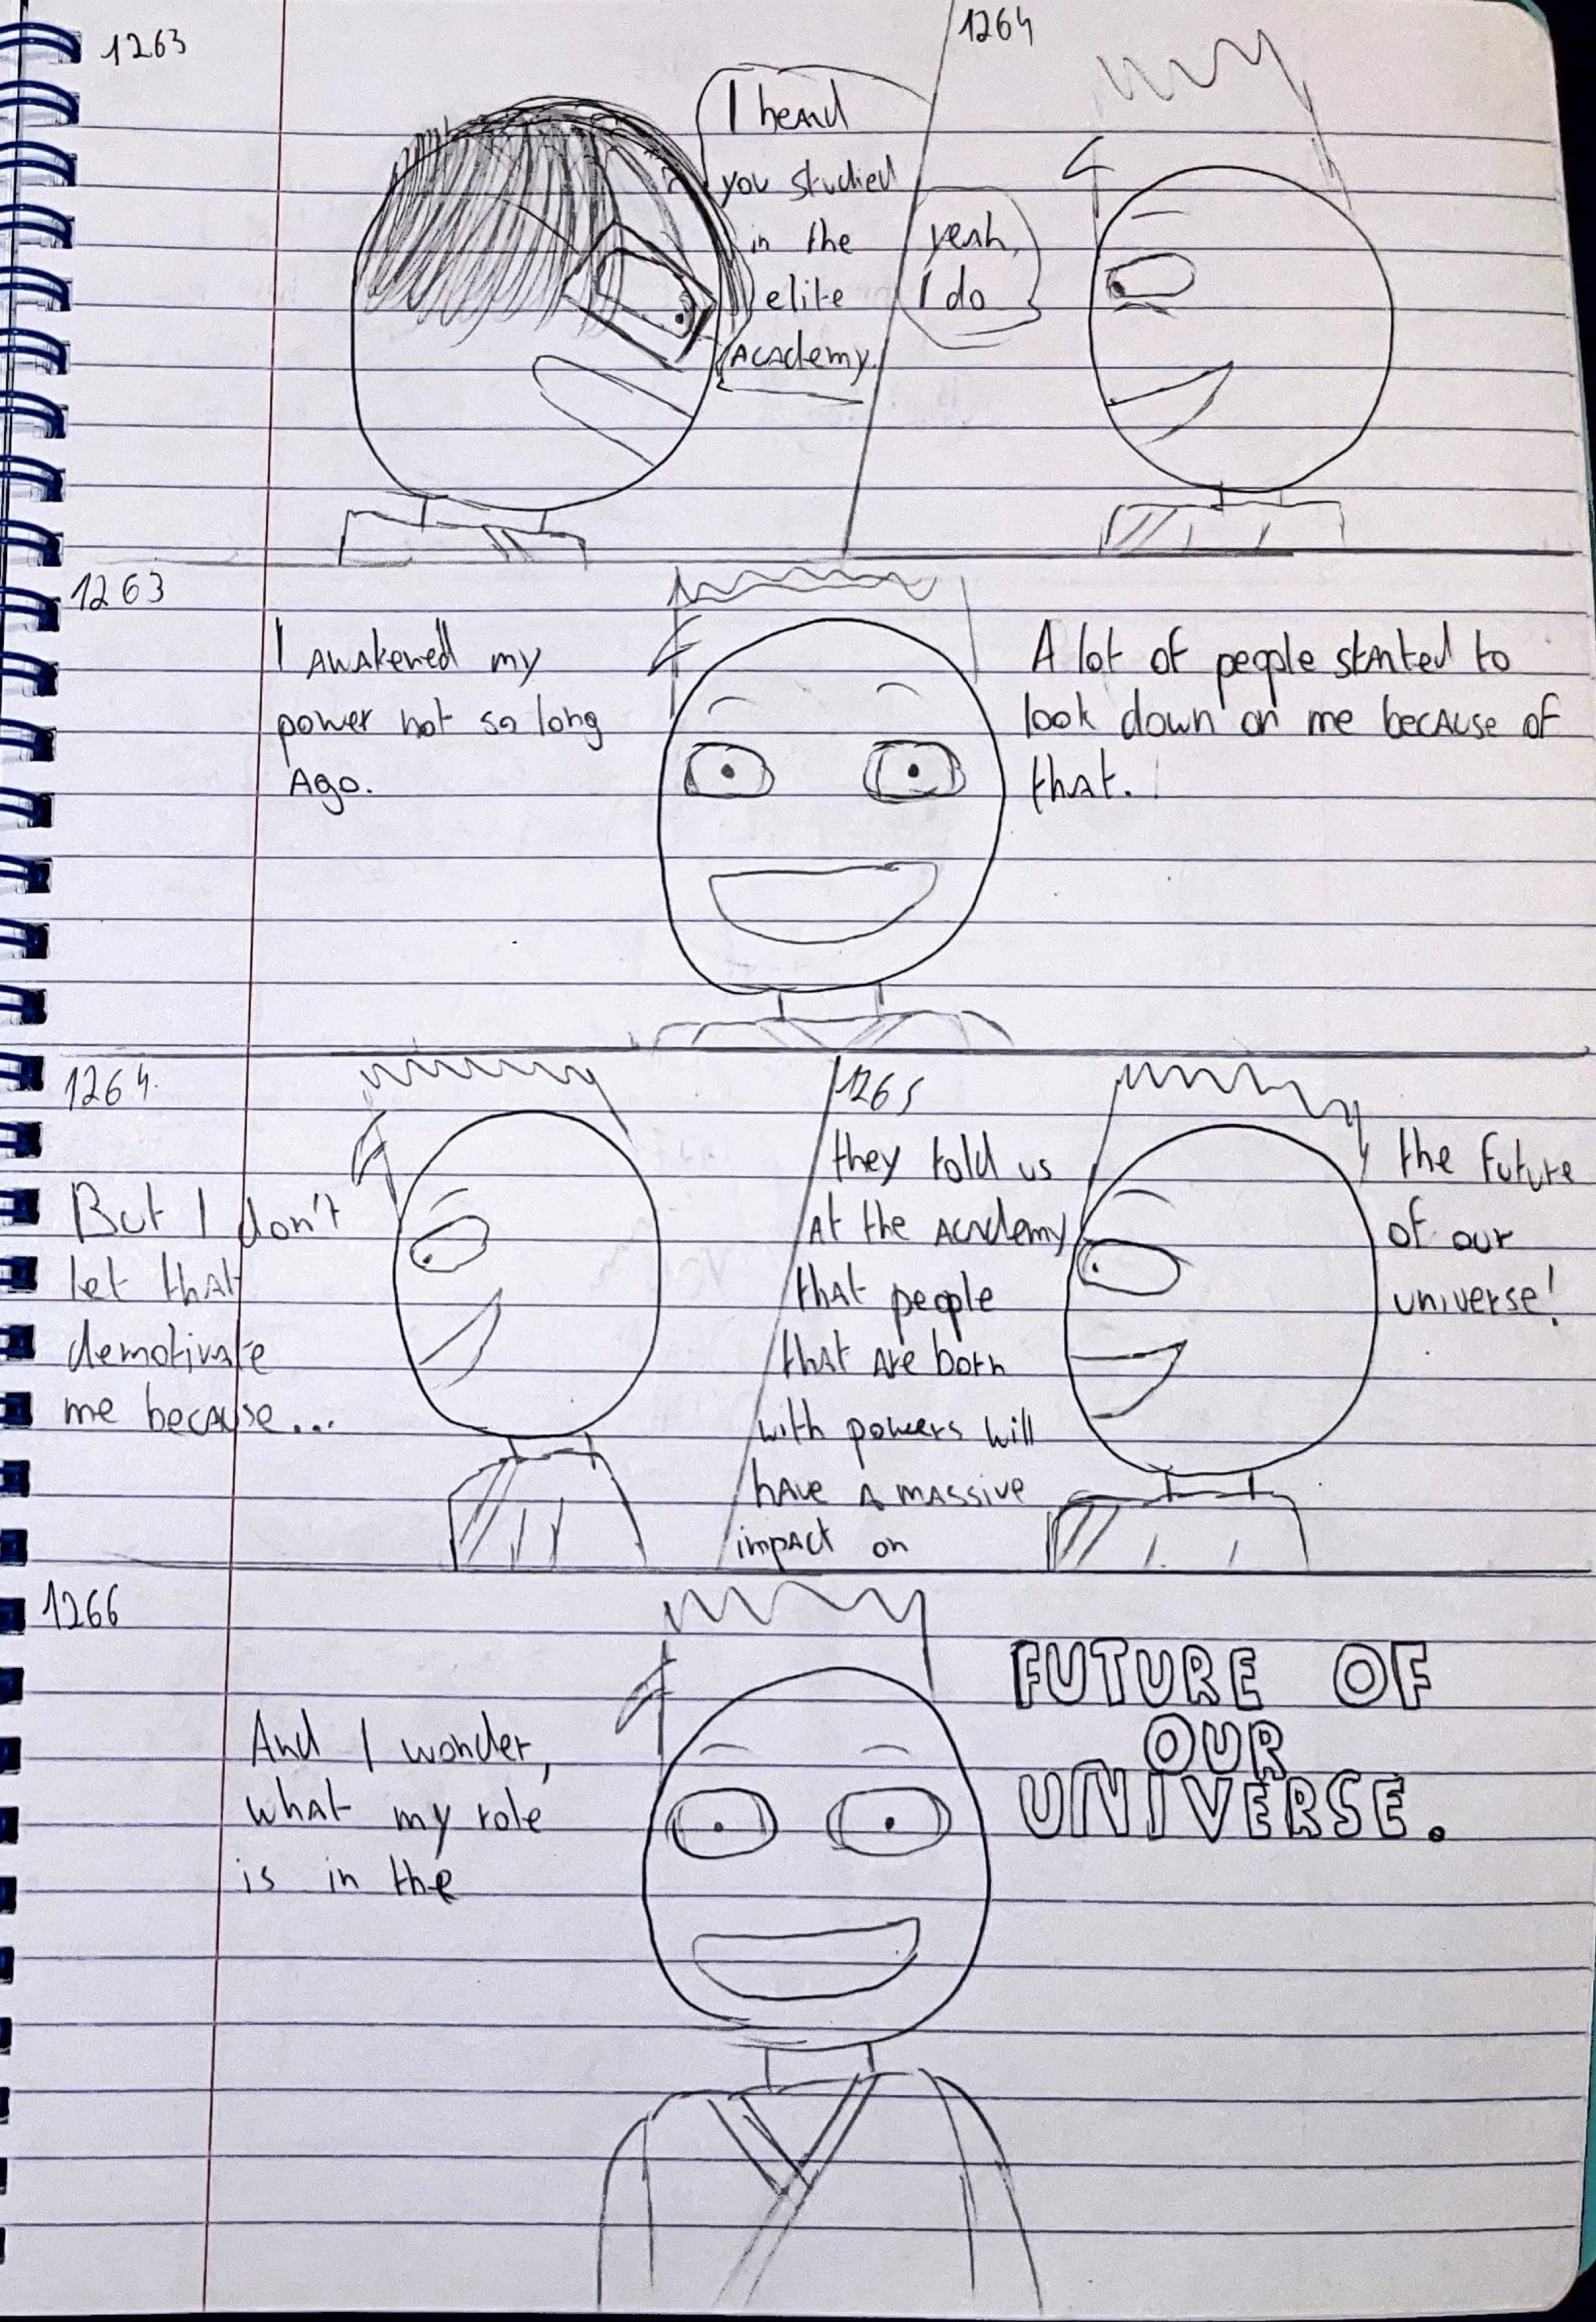 1263
I heard
you studied
in the
elite
Academy.
1264
yeah,
I do
1263
I awakened my
power not so long
Ago.
A lot of people started to
look down on me because of
that.
1264.
But I don't
let that
demotivate
me because...
1265
they told us
At the Academy
that people
that are born
with powers will
have a massive
impact on
the future
of our
universe!
1266
And I wonder,
what my role
is in the
FUTURE OF
OUR
UNIVERSE.